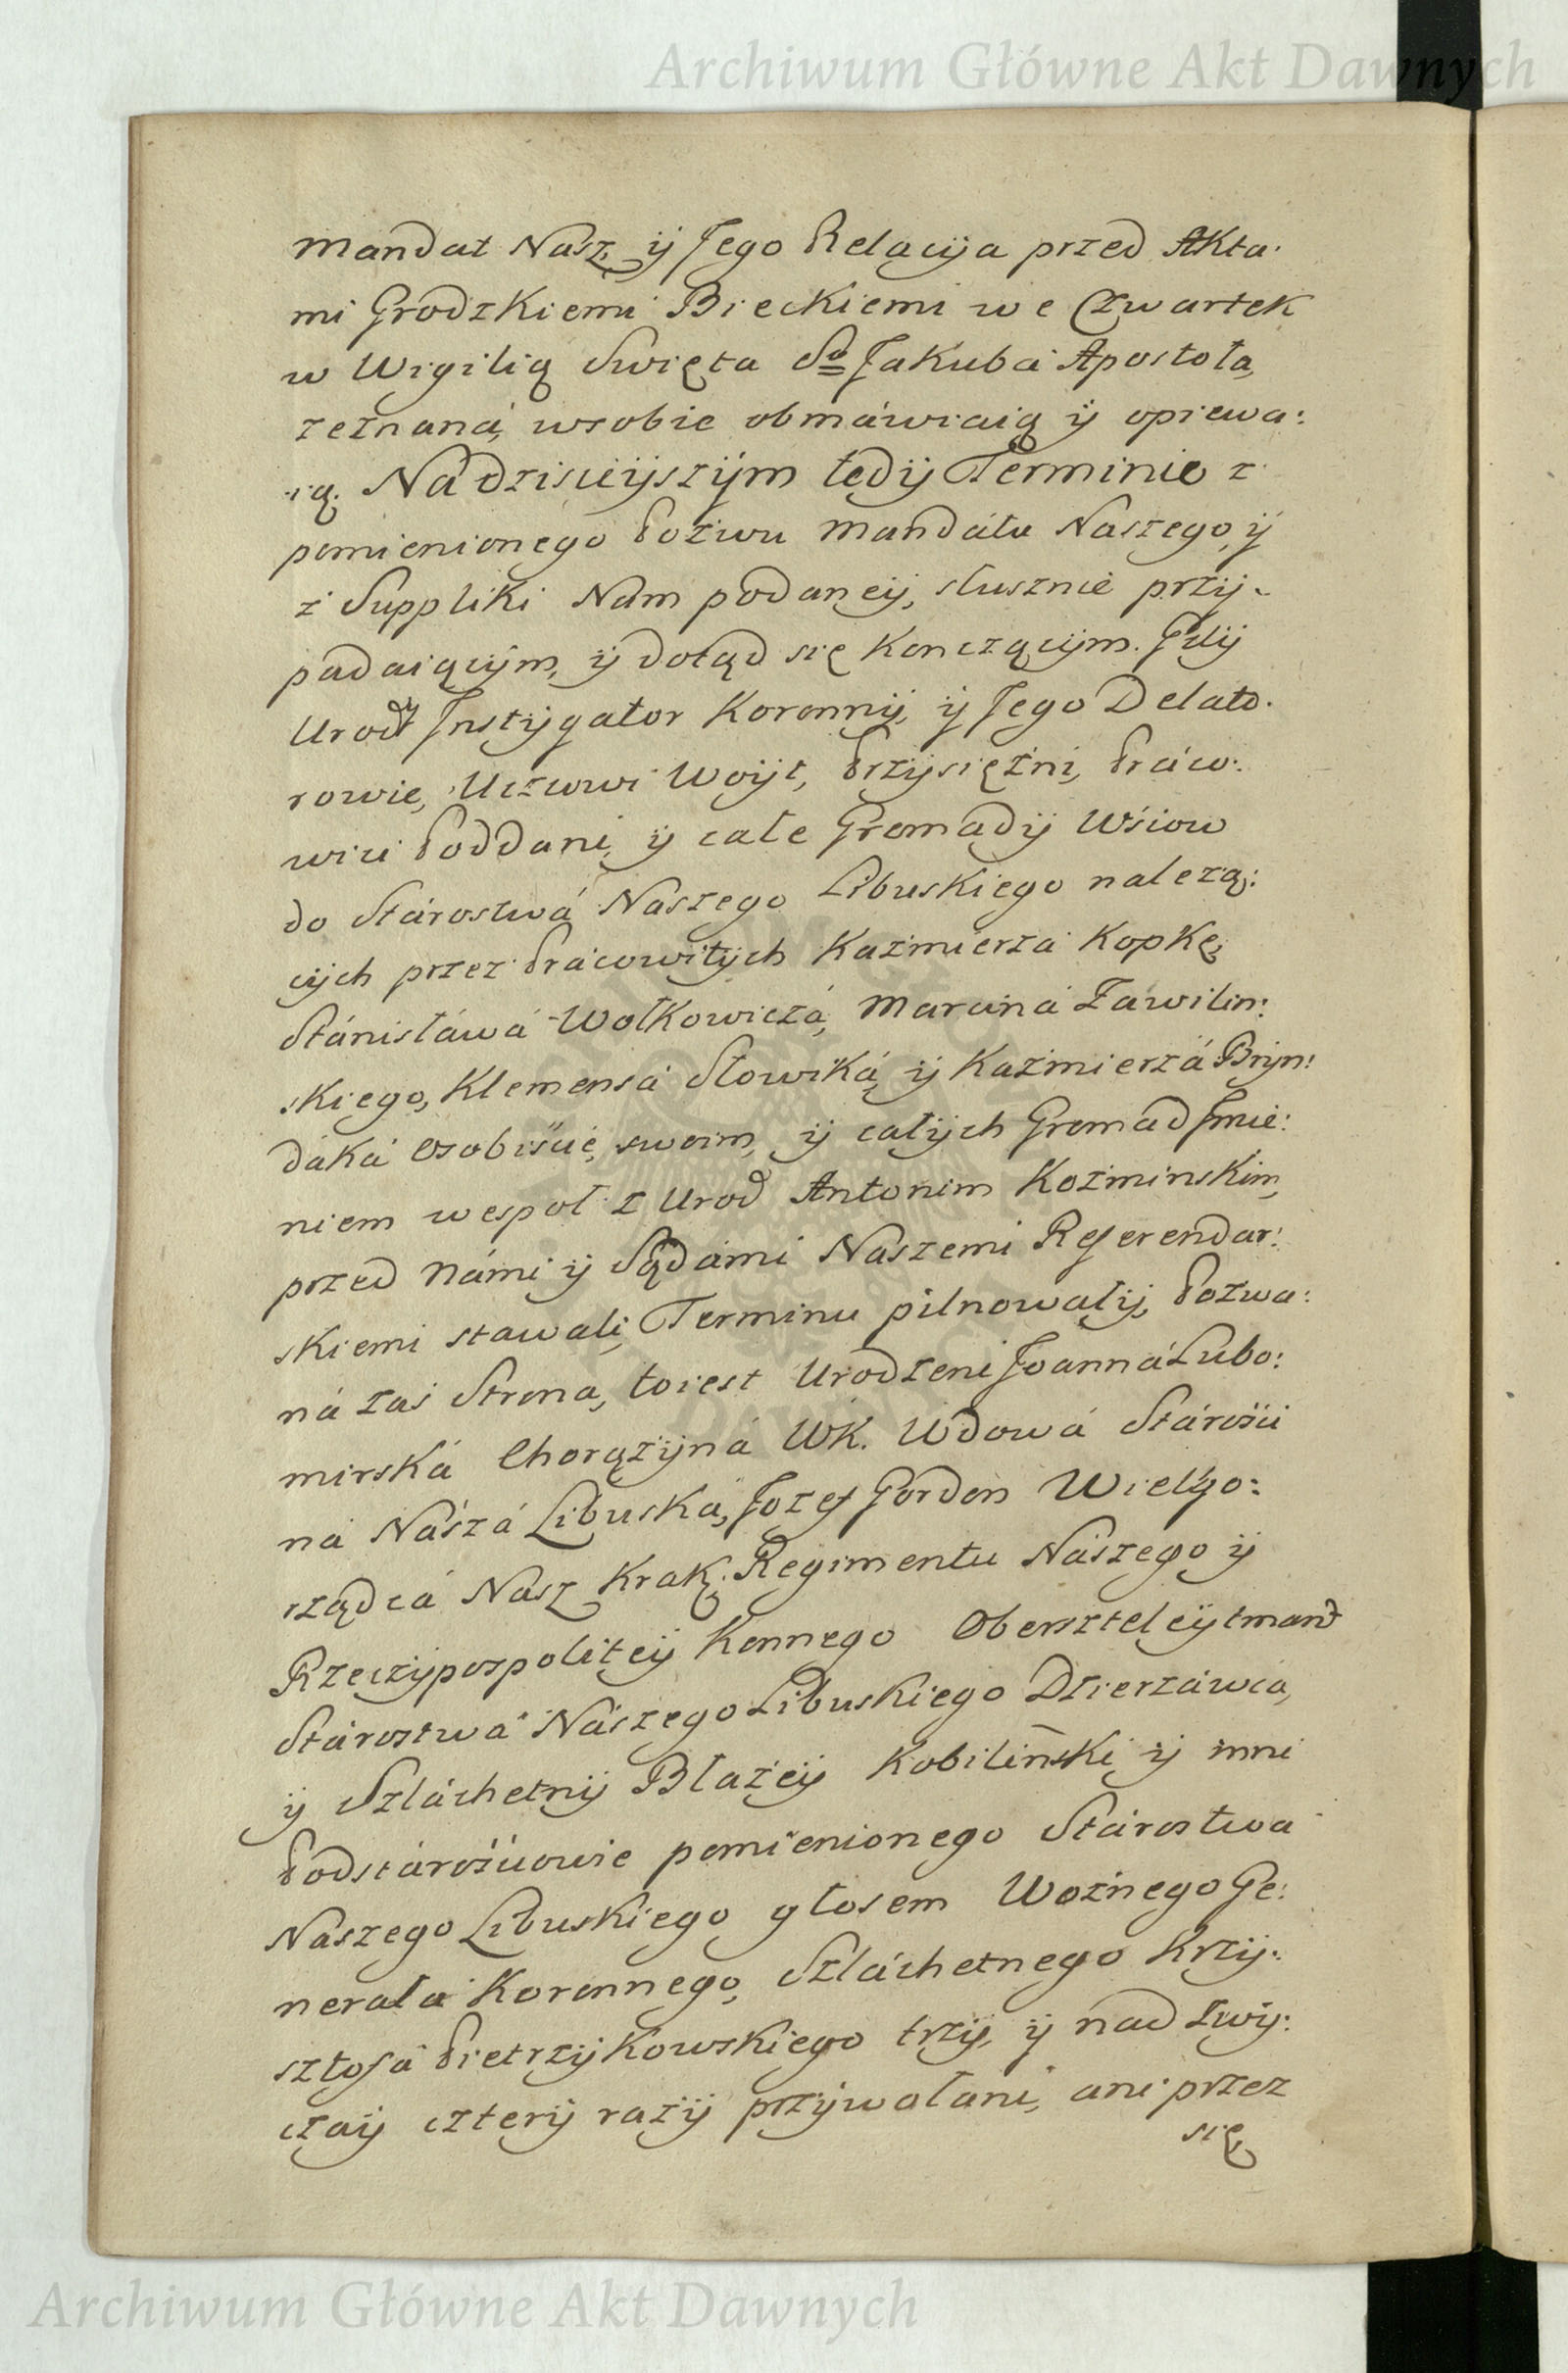 Archiwum Główne Akt Dawnych
Mandat Nasz, ÿ Jego Relacÿa przed Akta:
mi Grodzkiemi Bieckiemi we Czwartek
w Wigilią Swięta So Jakuba Apostoła,
zeznaná, wsobie obmáwiaią ÿ opiewa:
ią. Ná dzisieÿszÿm tedÿ Terminie z
pomienionego Pozwu Mandátu Naszego, ÿ
z Suppliki Nam podaneÿ, słusznie przÿ:
padaiącÿm, ÿ dotąd się Konczącÿm. Gdÿ
Urodź Instÿgator Koronnÿ, ÿ Jego Delato:
rowie, Uczciwi Woÿt, Przÿsiężni, Práco:
wici Poddani, ÿ całe Gromadÿ Wsiow
do Stárostwá Naszego Libuskiego nalezą:
cÿch przez Prácowitÿch Kaźmierzá Kopkę,
Stánisłáwá Wołkowiczá, Marciná Zawilin:
skiego, Klemensá Słowiká, ÿ Kaźmierzá Brÿn:
dáká osobiście, swoim, ÿ całÿch Gromad Jmie:
niem wespoł z Urod Antonim Kozminskim,
przed Námi ÿ Sądámi Naszemi Referendar:
skiemi stawali, Terminu pilnowałÿ, Pozwa:
ná zaś Strona, toiest Urodzeni Joanná Lubo:
mirská Chorązÿná WK. Wdowá Stárości
ná Nászá Libuská, Jozef Gordon Wielgo:
rządcá Nasz Krak: Regimentu Nászego ÿ
Rzeczÿpospoliteÿ Konnego Oberszteleÿtmant
Stárostwá Nászego Libuskiego Dzierzáwca,
ÿ Szláchetnÿ Błażeÿ Kobiliński, ÿ inni
Podstárościowie pomienionego Stárostwa
Naszego Libuskiego, głosem Woźnego Ge:
nerała Koronnego, Szláchetnego Krzÿ:
sztofá Pietrzÿkowskiego trzÿ, ÿ nad zwÿ:
czaÿ czterÿ razÿ przÿwołani, ani przez
się,
Archiwum Główne Akt Dawnych